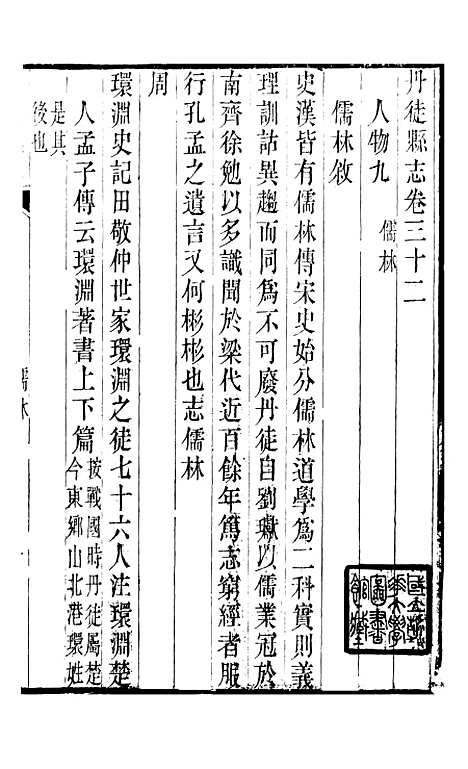 丹徒縣志卷三十二
人物九　儒林
儒林敘
史漢皆有儒林傳宋史始分儒林道學為二科實則義
理訓詁異趨而同為不可廢丹徒自劉瓛以儒業冠於
南齊徐勉以多識聞於梁代近百餘年篤志窮經者服
行孔孟之遺言又何彬彬也志儒林
周
環淵史記田敬仲世家環淵之徒七十六人注環淵楚
人孟子傳云環淵著書上下篇按戰國時丹徒屬楚
今東鄉山北港環姓
是其
後也
儒林